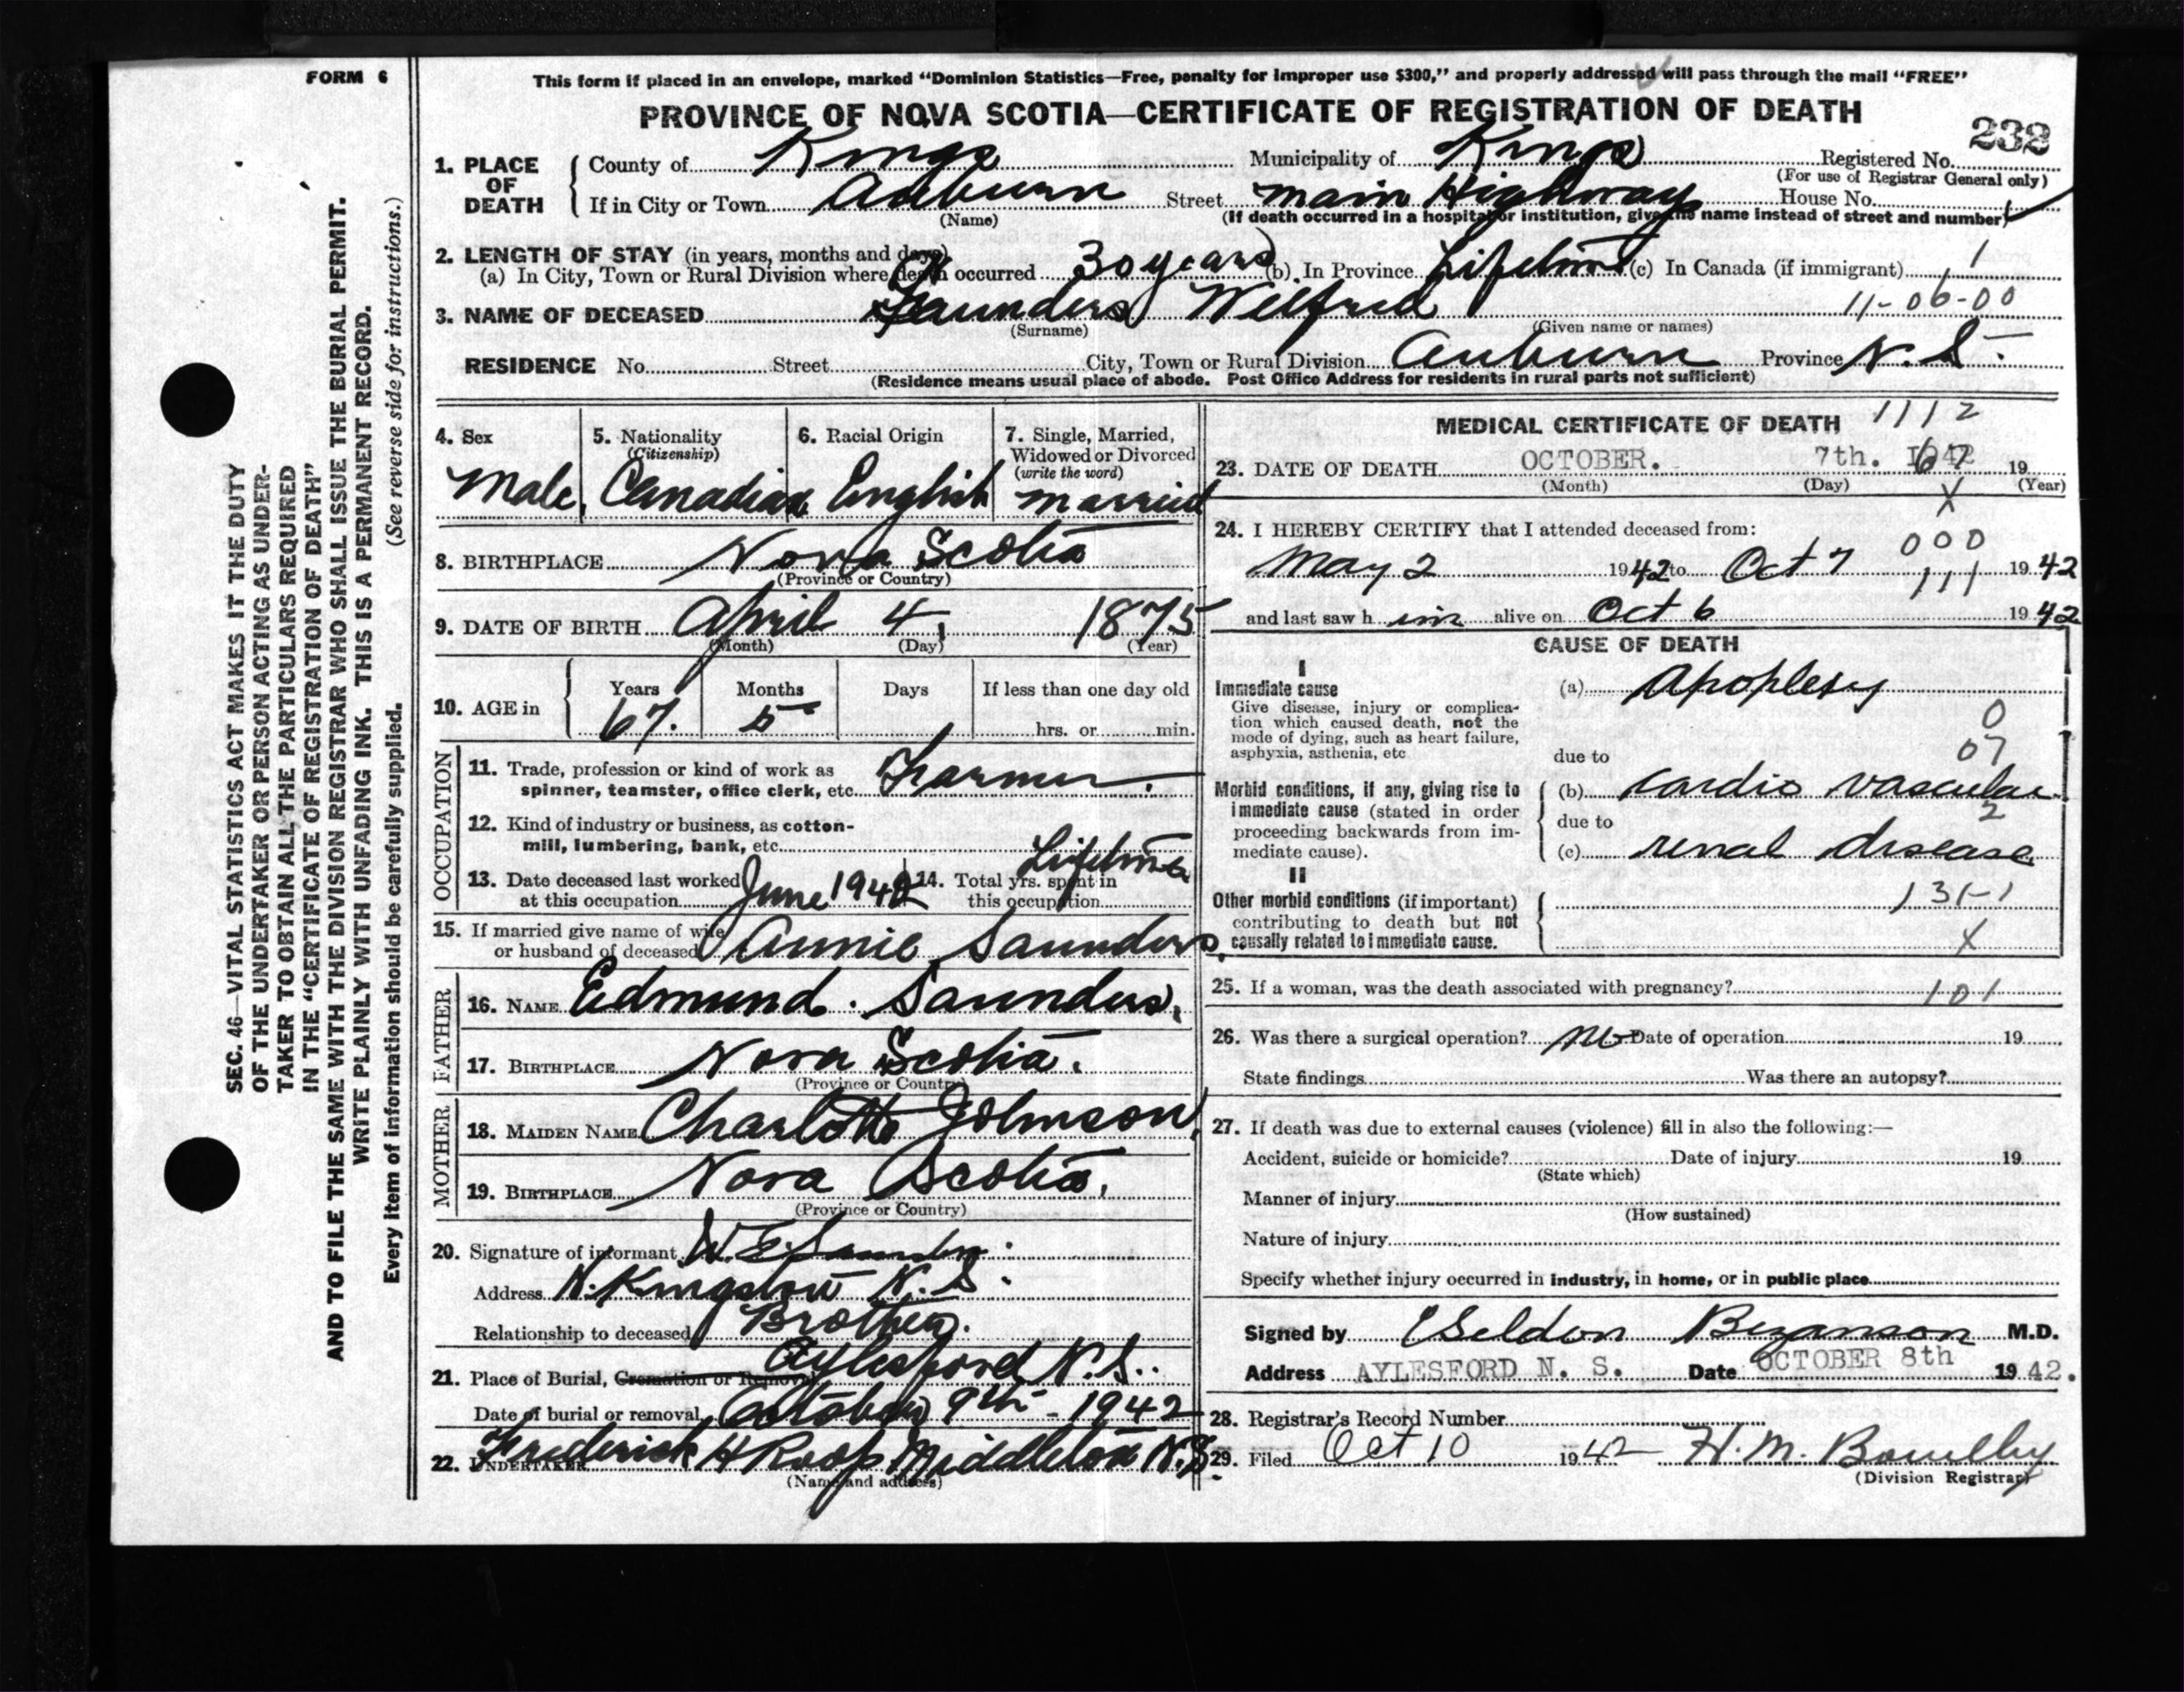 FORM 6
This form if placed in an envelope, marked "Dominion Statistics—Free, penalty for improper use $300," and properly addressed will pass through the mail "FREE"
PROVINCE OF NOVA SCOTIA—CERTIFICATE OF REGISTRATION OF DEATH
232
1. PLACE OF DEATH County of Kings Municipality of Kings Registered No.
(For use of Registrar General only)
If in City or Town Auburn Street main Highway House No.
(Name) (If death occurred in a hospital or institution, give the name instead of street and number)
2. LENGTH OF STAY (in years, months and days)
(a) In City, Town or Rural Division where death occurred 30 years (b) In Province Lifetime (c) In Canada (if immigrant) 1
3. NAME OF DECEASED Saunders Wilfred 11-06-00
(Surname) (Given name or names)
RESIDENCE No. Street City, Town or Rural Division Auburn Province N.S.
(Residence means usual place of abode. Post Office Address for residents in rural parts not sufficient)
4. Sex 5. Nationality (Citizenship) 6. Racial Origin 7. Single, Married, Widowed or Divorced (write the word)
Male Canadian English married
8. BIRTHPLACE Nova Scotia
(Province or Country)
9. DATE OF BIRTH April 4, 1875
(Month) (Day) (Year)
10. AGE in Years Months Days If less than one day old
67. 5 hrs. or min.
OCCUPATION
11. Trade, profession or kind of work as
spinner, teamster, office clerk, etc. Farmer.
12. Kind of industry or business, as cotton-
mill, lumbering, bank, etc.
13. Date deceased last worked at this occupation June 1942 14. Total yrs. spent in this occupation Lifetime
15. If married give name of wife
or husband of deceased Annie Saunders.
FATHER
16. NAME Edmund Saunders.
17. BIRTHPLACE Nova Scotia.
(Province or Country)
MOTHER
18. MAIDEN NAME Charlotte Johnson.
19. BIRTHPLACE Nova Scotia.
(Province or Country)
20. Signature of informant W. E. Saunders.
Address N. Kingston N.S.
Relationship to deceased Brother.
21. Place of Burial, Cremation or Removal Aylesford N.S.
Date of burial or removal October 9th - 1942
22. UNDERTAKER Frederick H Roop Middleton N.S.
(Name and address)
MEDICAL CERTIFICATE OF DEATH 1112
23. DATE OF DEATH OCTOBER. 7th. 1942 67 19
(Month) (Day) (Year)
X
24. I HEREBY CERTIFY that I attended deceased from:
000
May 2 1942 to Oct 7 1942
111
and last saw h im alive on Oct 6 1942
CAUSE OF DEATH
I
Immediate cause (a) Apoplexy
Give disease, injury or complica-
tion which caused death, not the
mode of dying, such as heart failure,
asphyxia, asthenia, etc due to
0
07
Morbid conditions, if any, giving rise to (b) cardio vascular
immediate cause (stated in order due to 2
proceeding backwards from im-
mediate cause). (c) renal disease
II
Other morbid conditions (if important) 131-1
contributing to death but not
causally related to immediate cause. X
25. If a woman, was the death associated with pregnancy? 101
26. Was there a surgical operation? no Date of operation 19
State findings Was there an autopsy?
27. If death was due to external causes (violence) fill in also the following:—
Accident, suicide or homicide? Date of injury 19
(State which)
Manner of injury
(How sustained)
Nature of injury
Specify whether injury occurred in industry, in home, or in public place
Signed by Bezanson M.D.
Address AYLESFORD N. S. Date OCTOBER 8th 1942.
28. Registrar's Record Number
29. Filed Oct 10 1942 H. M.
(Division Registrar)
SEC. 46—VITAL STATISTICS ACT MAKES IT THE DUTY
OF THE UNDERTAKER OR PERSON ACTING AS UNDER-
TAKER TO OBTAIN ALL THE PARTICULARS REQUIRED
IN THE "CERTIFICATE OF REGISTRATION OF DEATH"
AND TO FILE THE SAME WITH THE DIVISION REGISTRAR WHO SHALL ISSUE THE BURIAL PERMIT.
WRITE PLAINLY WITH UNFADING INK. THIS IS A PERMANENT RECORD.
Every item of information should be carefully supplied. (See reverse side for instructions.)